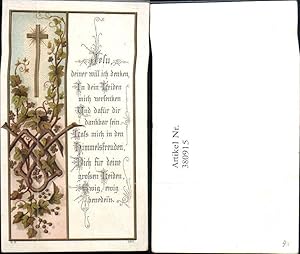 Jesu,
deiner will ich denken,
In dein Leiden
mich versenken
Und dafür dir
dankbar sein.
Lass mich in den
Himmelsfreuden,
Dich für deine
grossen Leiden,
Ewig, ewig
benedein.
Artikel Nr.
380915